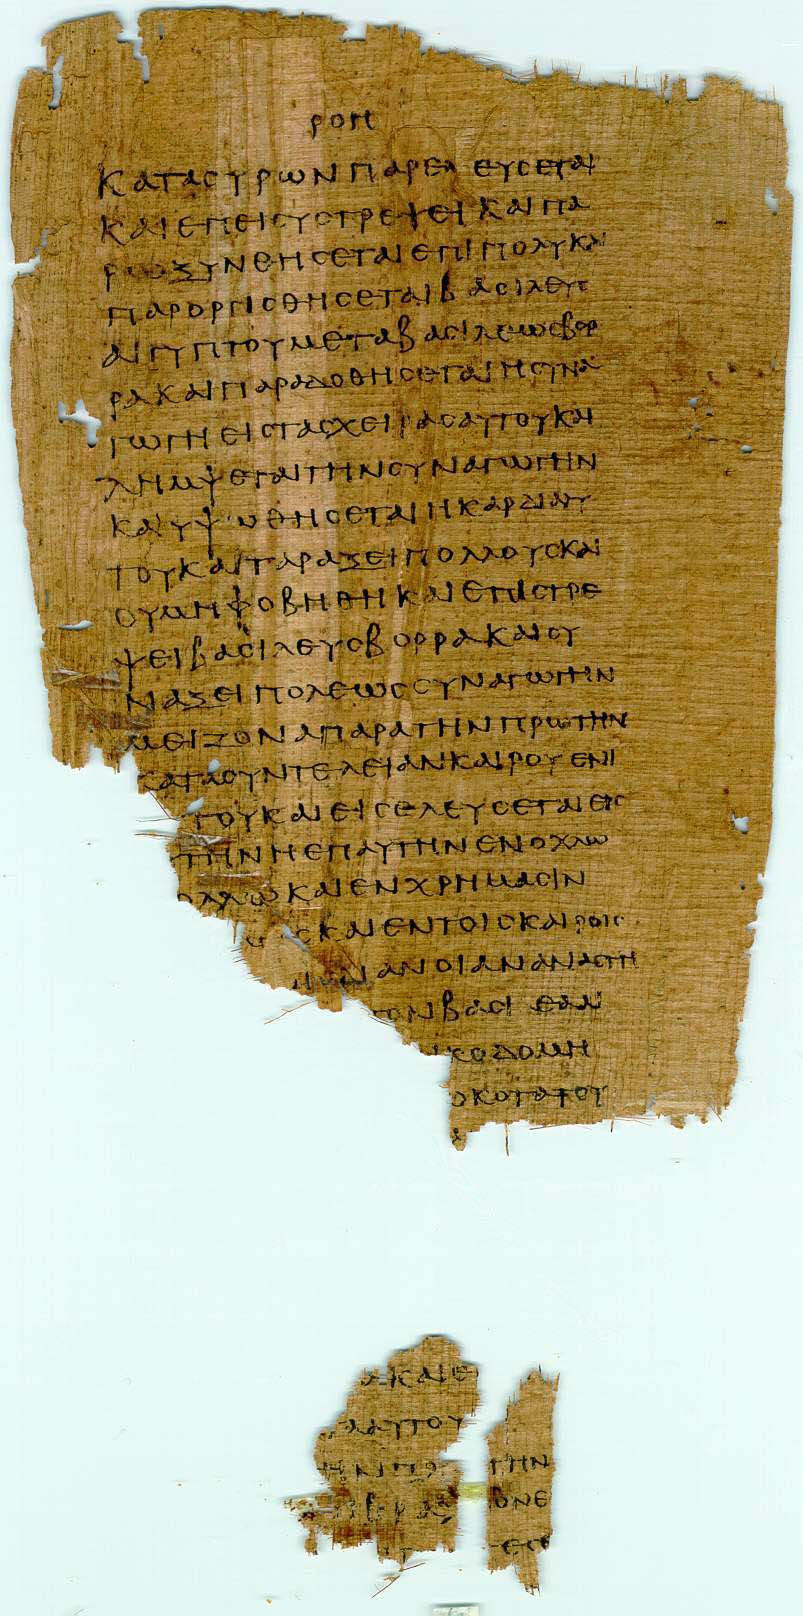 ΡΟΗ
ΚΑΤΑϹΥΡΩΝΠΑΡΕΛΕΥϹΕΤΑΙ
ΚΑΙΕΠΕΙϹΥϹΤΡΕΨΕΙΚΑΙΠΑ
ΡΟΞΥΝΘΗϹΕΤΑΙΕΠΙΠΟΛΥΚΑΙ
ΠΑΡΟΡΓΙϹΘΗϹΕΤΑΙΒΑϹΙΛΕΥϹ
ΑΙΓΥΠΤΟΥΜΕΤΑΒΑϹΙΛΕΩϹΒΟΡ
ΡΑΚΑΙΠΑΡΑΔΟΘΗϹΕΤΑΙΗϹΥΝΑ
ΓΩΓΗΕΙϹΤΑϹΧΕΙΡΑϹΑΥΤΟΥΚΑΙ
ΛΗΜΨΕΤΑΙΤΗΝϹΥΝΑΓΩΓΗΝ
ΚΑΙΥΨΩΘΗϹΕΤΑΙΗΚΑΡΔΙΑΑΥ
ΤΟΥΚΑΙΤΑΡΑΞΕΙΠΟΛΛΟΥϹΚΑΙ
ΟΥΜΗΦΟΒΗΘΗΚΑΙΕΠΙϹΤΡΕ
ΨΕΙΒΑϹΙΛΕΥϹΒΟΡΡΑΚΑΙϹΥ
ΝΑΞΕΙΠΟΛΕΩϹϹΥΝΑΓΩΓΗΝ
ΜΕΙΖΟΝΑΠΑΡΑΤΗΝΠΡΩΤΗΝ
ΚΑΤΑϹΥΝΤΕΛΕΙΑΝΚΑΙΡΟΥΕΝΙ
ΤΟΥΚΑΙΕΙϹΕΛΕΥϹΕΤΑΙΕΙϹ
ΤΗΝΗΕΠΑΥΤΗΝΕΝΟΧΛΩ
ΟΛΛΩΚΑΙΕΝΧΡΗΜΑϹΙΝ
ϹΚΑΙΕΝΤΟΙϹΚΑΙΡΟΙϹ
ΑΝΟΙΑΝΑΝΑϹΤΗ
ΤΟΝΒΑϹΙΛΕΑΑΙ
ΚΟΔΟΜΗ
ΟΚΟΤΑΤΟΥ
ΚΑΙΕ
ΑΥΤΟΥ
ΗΝΠΟ ΤΗΝ
ΒΡΑΣ ΘΝΕ